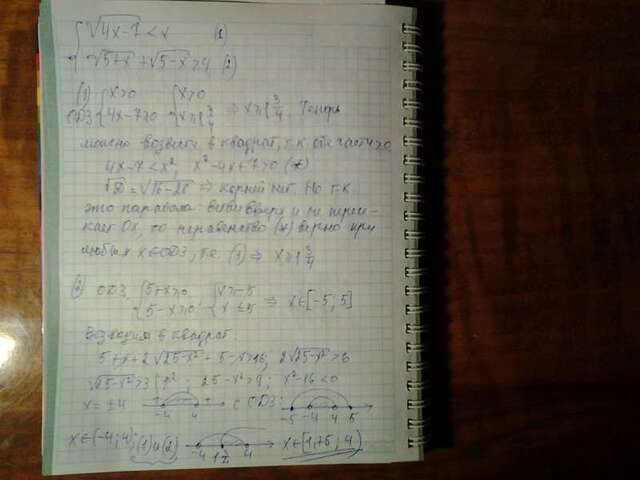 { √4x-7 < x (1)
√5+x + √5-x > 4 (2)
(1) { x>0 { x>0
ОДЗ { 4x-7≥0 { x≥1 3/4 ⇒ x≥1 3/4 Теперь
можно возвести в квадрат, т.к обе части >0
4x-7<x², x²-4x+7>0 (*)
√D = √16-28 ⇒ корней нет. Но т.к
это парабола ветви вверх и не пересе-
кает Ox, то неравенство (*) верно при
любых x∈ОДЗ, т.е. (1) ⇒ x≥1 3/4
(2) ОДЗ { 5+x≥0 { x≥-5
{ 5-x≥0 { x≤5 ⇒ x∈[-5,5]
Возводим в квадрат:
5+x+2√25-x² + 5-x>16; 2√25-x²>6
√25-x²>3 25-x²>9; x²-16<0
x=±4 -4 4 с ОДЗ: -5 -4 4 5
x∈(-4;4); (1)и(2) -4 4 x∈[1,75; 4)